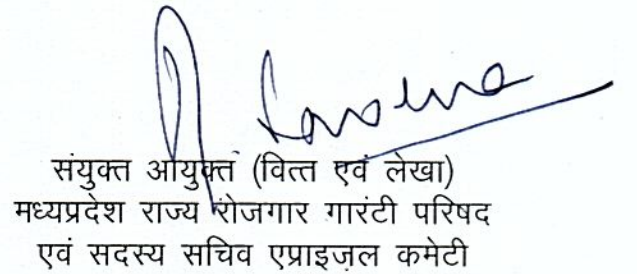 संयुक्त आयुक्त (वित्त एवं लेखा)
मध्यप्रदेश राज्य रोजगार गारंटी परिषद
एवं सदस्य सचिव एप्राइज़ल कमेटी